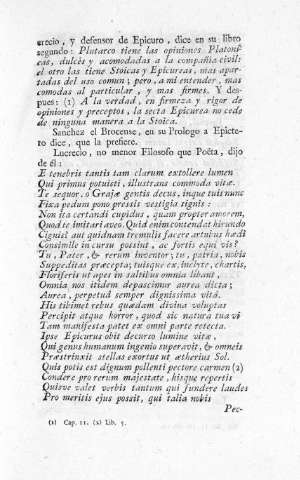 erecio, y defensor de Epicuro, dice en su libro
segundo: Plutarco tiene las opiniones Platoni-
cas, dulces y acomodadas a la compañia civil:
el otro las tiene Stoicas y Epicureas, mas apar-
tadas del uso comun; pero, a mi entender, mas
comodas al particular, y mas firmes. Y des-
pues: (1) A la verdad, en firmeza y rigor de
opiniones y preceptos, la secta Epicurea no cede
de ninguna manera a la Stoica.
Sanchez el Brocense, en su Prologo a Epicte-
to dice, que la prefiere.
Lucrecio, no menor Filosofo que Poëta, dijo
de él:
E tenebris tantis tam clarum extollere lumen
Qui primus potuisti, illustrans commoda vitæ.
Te sequor, o Grajæ gentis decus, inque tuis nunc
Fixa pedum pono pressis vestigia signis:
Non ita certandi cupidus, quam propter amorem,
Quod te imitari aveo. Quid enim contendat hirundo
Cignis? aut quidnam tremulis facere artubus hædi
Consimile in cursu possint, ac fortis equi vis?
Tu, Pater, & rerum inventor; tu, patria, nobis
Suppeditas præcepta; tuisque ex, inclyte, chartis,
Floriferis ut apes in saltibus omnia libant,
Omnia nos itidem depascimur aurea dicta;
Aurea, perpetud semper dignissima vitâ.
His tibi me rebus quædam divina voluptas
Percipit atque horror, quod sic natura tua vi
Tam manifesta patet ex omni parte retecta.
Ipse Epicurus obit decurso lumine vitæ,
Qui genus humanum ingenio superavit, & omneis
Præstrinxit stellas exortus ut ætherius Sol.
Quis potis est dignum pollenti pectore carmen (2)
Condere pro rerum majestate, hisque repertis
Quisve valet verbis tantum qui fundere laudes
Pro meritis ejus possit, qui talia nobis
Pec-
(1) Cap. 11. (2) Lib. 5.